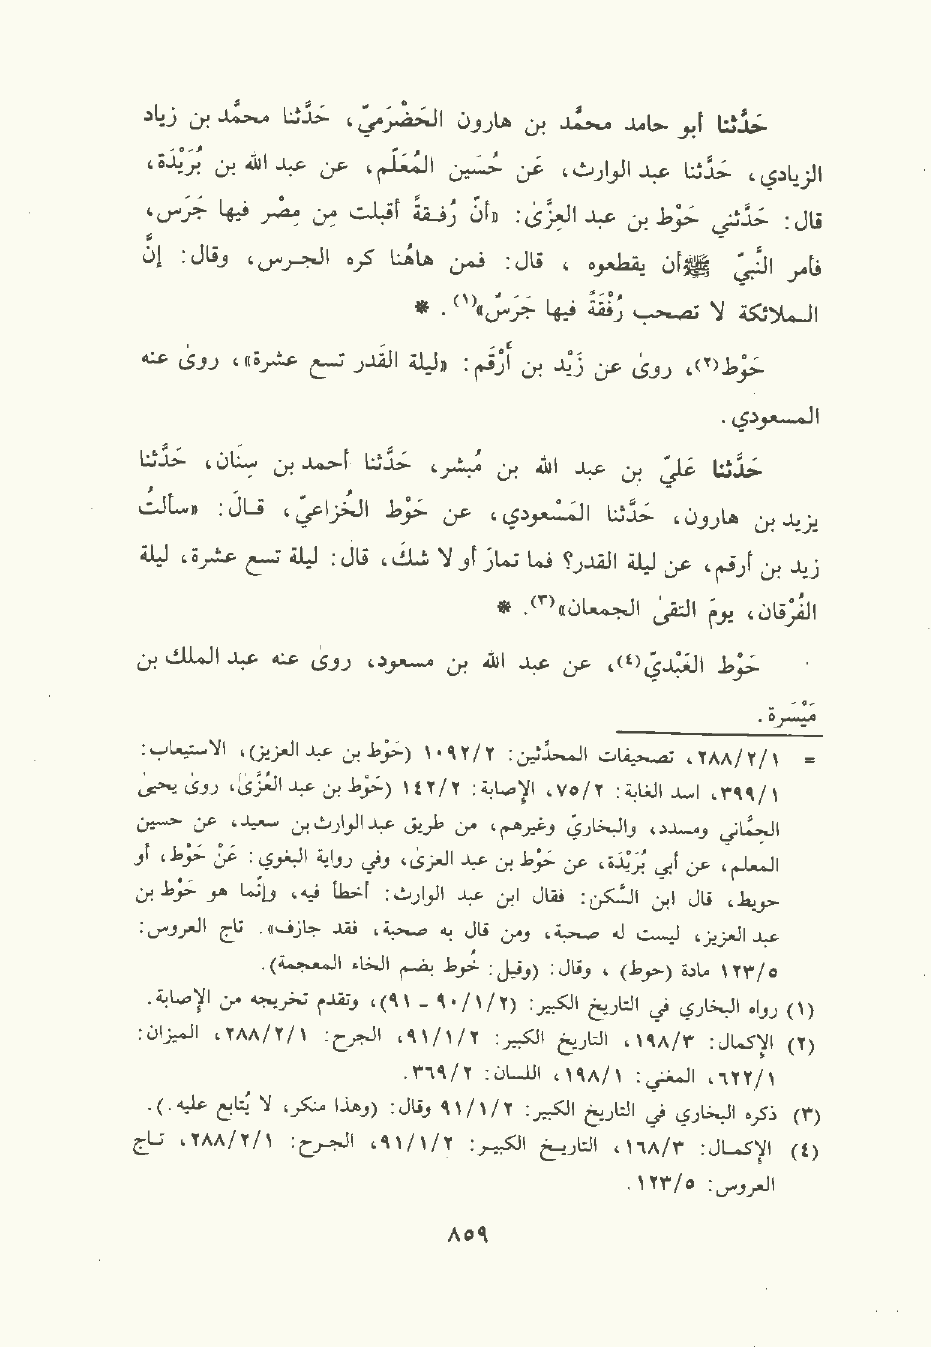 حَدَّثنا أبو حامد محمَّد بن هارون الحَضْرَميّ، حَدَّثنا محمَّد بن زياد
الزيادي، حَدَّثنا عبد الوارث، عَن حُسَين المُعَلِّم، عن عبد الله بن بُرَيْدَة،
قال: حَدَّثني حَوْط بن عبد العزَّىٰ: «أنَّ رُفـقـةً أقبلت مِن مِصْر فيها جَرَس،
فأمر النَّبيّ ﷺ أن يقطعوه ، قال: فمن هاهُنا كره الجـرس، وقال: إنَّ
الـملائكة لا تصحب رُفْقَةً فيها جَرَسٌ»(١). *
حَوْط(٢)، روىٰ عن زَيْد بن أَرْقَم: «ليلة القَدر تسع عشرة»، روىٰ عنه
المسعودي.
حَدَّثنا عَليّ بن عبد الله بن مُبشر، حَدَّثنا أحمد بن سِنَان، حَدَّثنا
يزيد بن هارون، حَدَّثنا المَسْعودي، عن حَوْط الخُزاعيّ، قـالَ: «سألتُ
زيد بن أرقم، عن ليلة القدر؟ فما تمارَ أو لا شكَّ، قال: ليلة تسع عشرة، ليلة
الفُرْقان، يومَ التقىٰ الجمعان»(٣). *
حَوْط العَبْديّ(٤)، عن عبد الله بن مسعود، روىٰ عنه عبد الملك بن
مَيْسَرة.
= ٢٨٨/٢/١، تصحيفات المحدّثين: ١٠٩٢/٢ (حَوْط بن عبد العزيز)، الاستيعاب:
٣٩٩/١، اسد الغابة: ٧٥/٢، الإصابة: ١٤٢/٢ (حَوْط بن عبد العُزَّىٰ، روىٰ يحيىٰ
الحِمَّاني ومسدد، والبخاريّ وغيرهم، من طريق عبد الوارث بن سعيد، عن حسين
المعلم، عن أبي بُرَيْدَة، عن حَوْط بن عبد العزىٰ، وفي رواية البغوي: عَنْ حَوْط، أو
حويط، قال ابن السَّكن: فقال ابن عبد الوارث: أخطأ فيه، وإنَّما هو حَوْط بن
عبد العزيز، ليست له صحبة، ومن قال به صحبة، فقد جازف». تاج العروس:
١٢٣/٥ مادة (حوط) ، وقال: (وقيل: خُوط بضم الخاء المعجمة).
(١) رواه البخاري في التاريخ الكبير: (٩٠/١/٢ - ٩١)، وتقدم تخريجه من الإصابة.
(٢) الإكمال: ١٩٨/٣، التاريخ الكبير: ٩١/١/٢، الجرح: ٢٨٨/٢/١، الميزان:
٦٢٢/١، المغني: ١٩٨/١، اللسان: ٣٦٩/٢.
(٣) ذكره البخاري في التاريخ الكبير: ٩١/١/٢ وقال: (وهذا منكر، لا يُتابع عليه.).
(٤) الإكمال: ١٦٨/٣، التاريخ الكبير: ٩١/١/٢، الجرح: ٢٨٨/٢/١، تاج
العروس: ١٢٣/٥.
٨٥٩